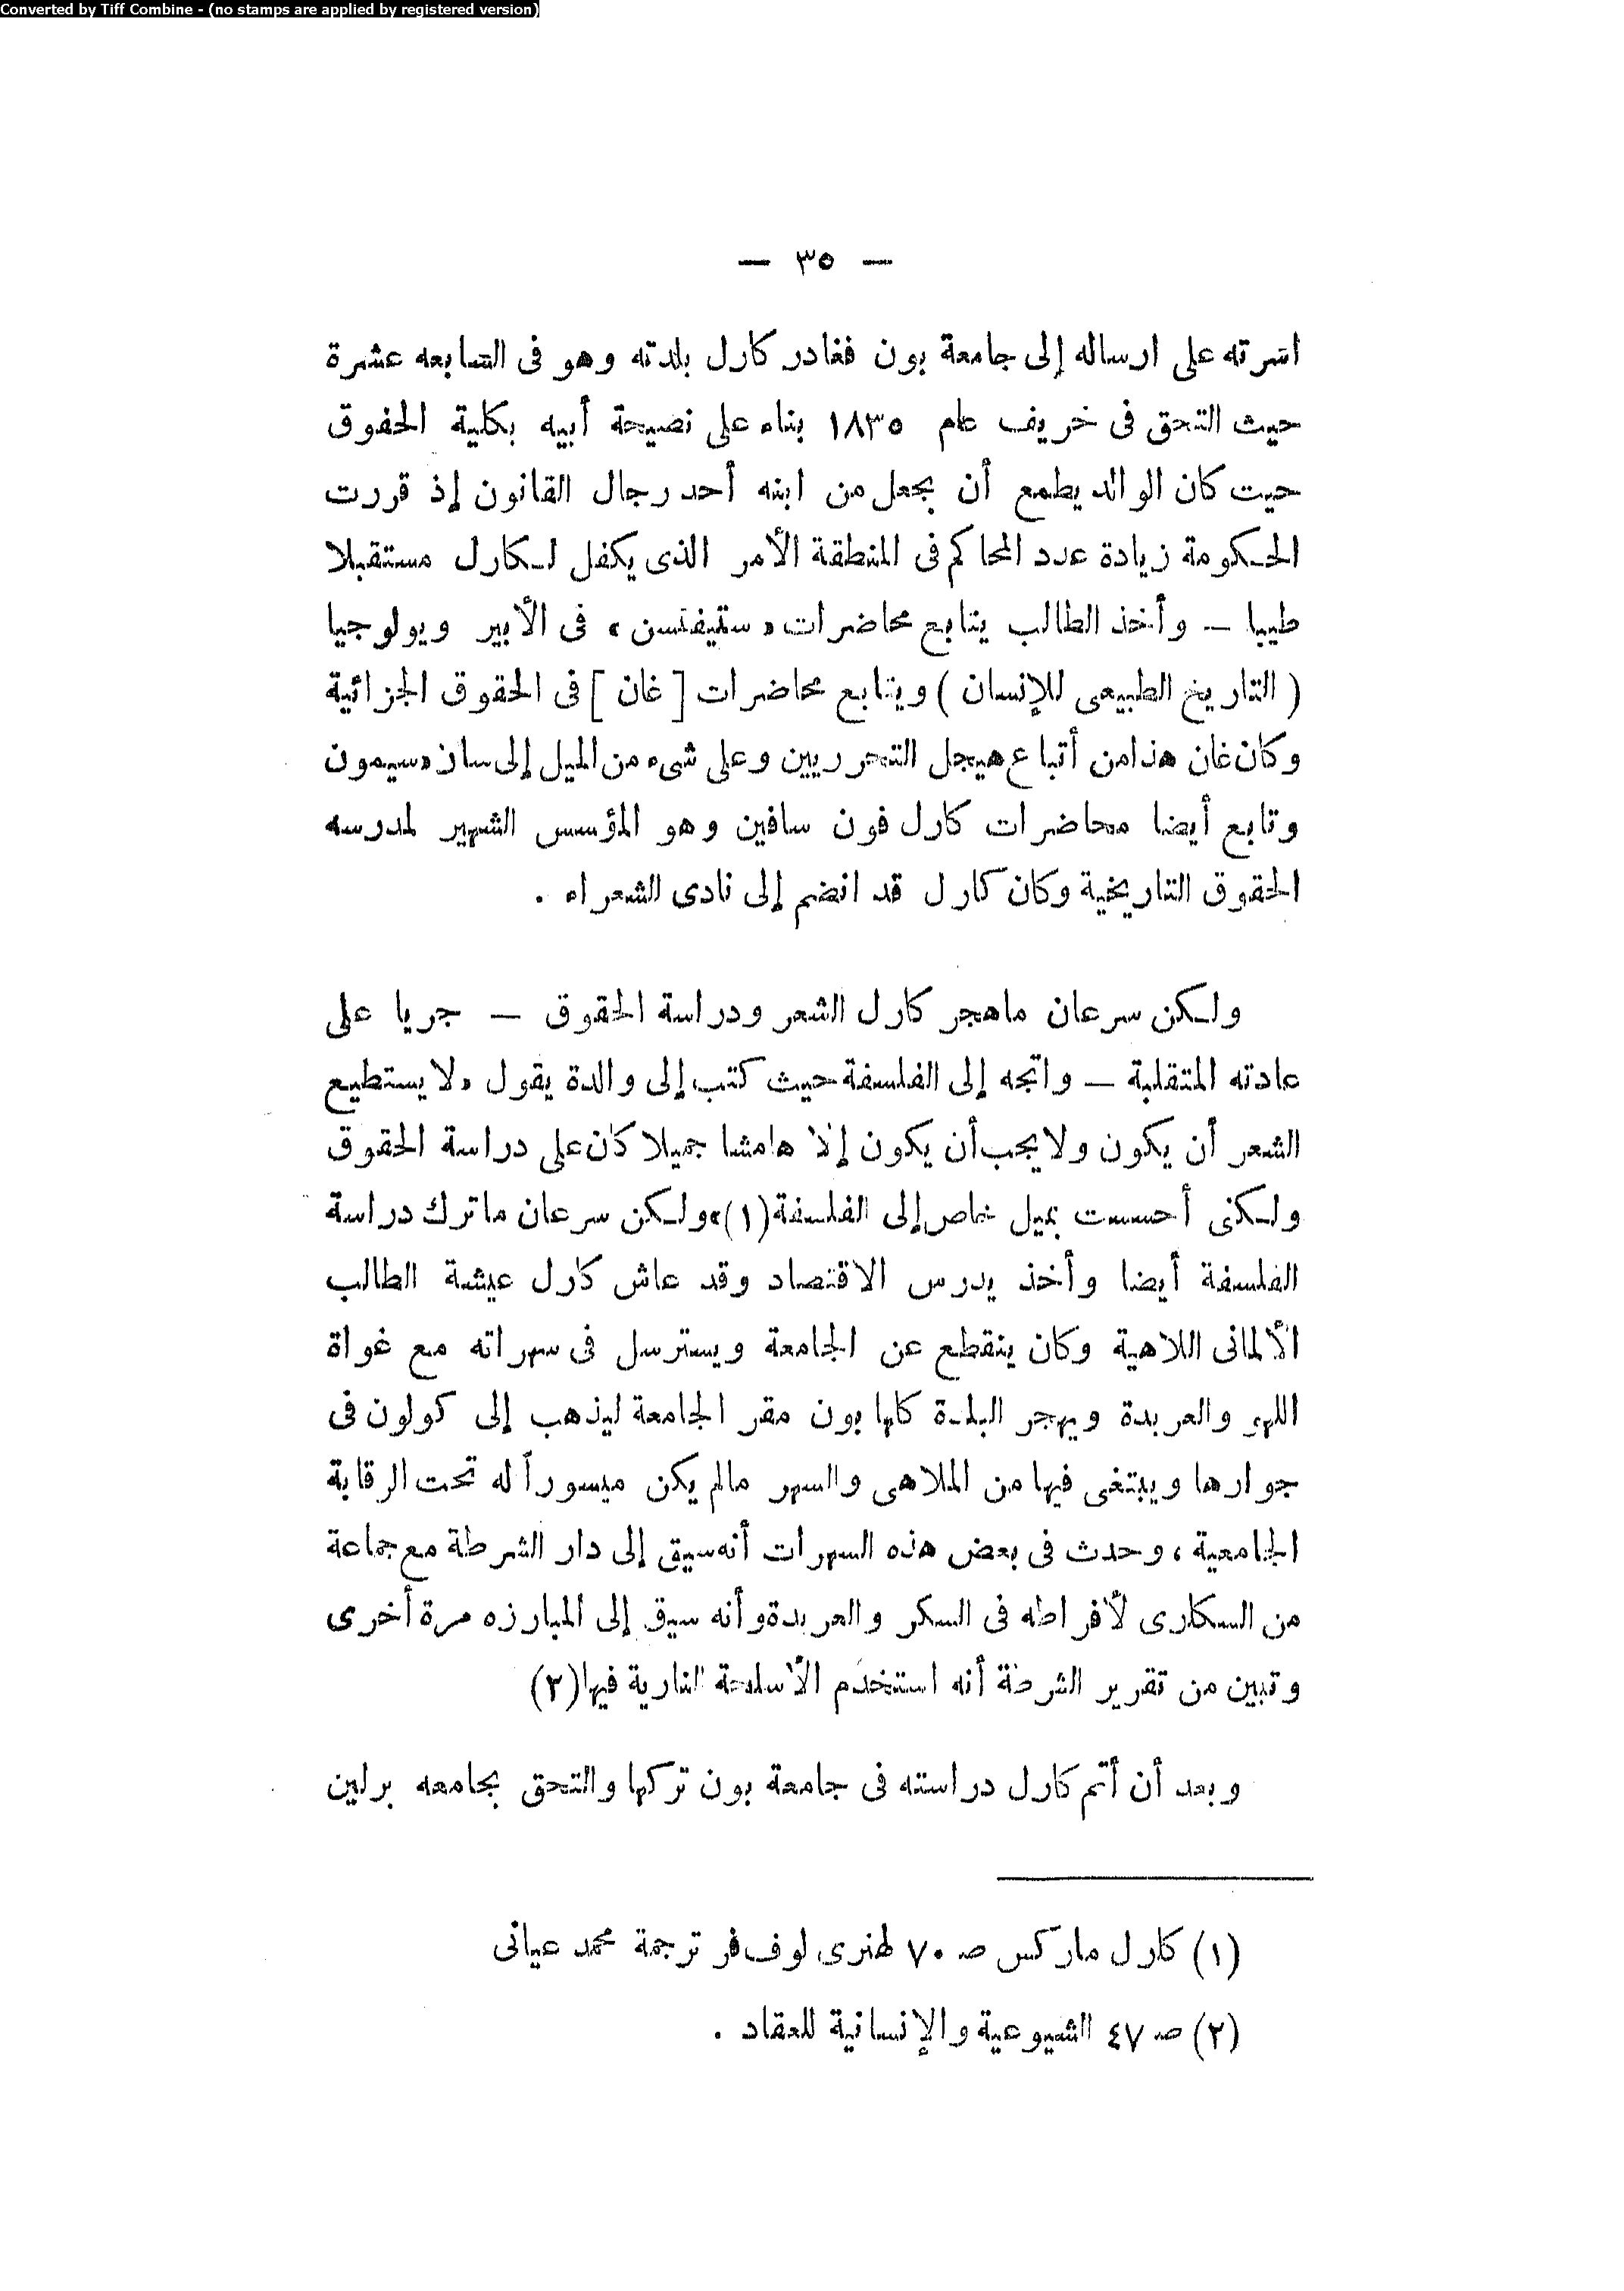 Converted by Tiff Combine - (no stamps are applied by registered version)
— ٣٥ —
اسرته على ارساله إلى جامعة بون فغادر كارل بلدته وهو فى السابعه عشرة
حيث التحق فى خريف عام ١٨٣٥ بناء على نصيحة أبيه بكلية الحقوق
حيت كان الوالد يطمع أن يجعل من ابنه أحد رجال القانون إذ قررت
الحكومة زيادة عدد المحاكم فى المنطقة الأمر الذى يكفل لكارل مستقبلا
طيبا — وأخذ الطالب يتابع محاضرات «ستيفنسن» فى الأبير ويولوجيا
( التاريخ الطبيعى للإنسان ) ويتابع محاضرات [ غان ] فى الحقوق الجزائية
وكان غان هذا من أتباع هيجل التحرريين وعلى شىء من الميل إلى سان «سيمون
وتابع أيضا محاضرات كارل فون سافين وهو المؤسس الشهير لمدرسه
الحقوق التاريخية وكان كارل قد انضم إلى نادى الشعراء .
ولكن سرعان ماهجر كارل الشعر ودراسة الحقوق — جريا على
عادته المتقلبة — واتجه إلى الفلسفة حيث كتب إلى والدة يقول «لا يستطيع
الشعر أن يكون ولا يجب أن يكون إلا هامشا جميلا كان على دراسة الحقوق
ولكنى أحسست بميل خاص إلى الفلسفة(١)» ولكن سرعان ماترك دراسة
الفلسفة أيضا وأخذ يدرس الاقتصاد وقد عاش كارل عيشة الطالب
الألمانى اللاهية وكان ينقطع عن الجامعة ويسترسل فى سهراته مع غواة
اللهو والعربدة ويهجر البلدة كلها بون مقر الجامعة ليذهب إلى كولون فى
جوارها ويبتغى فيها من الملاهى والسهر مالم يكن ميسوراً له تحت الرقابة
الجامعية ، وحدث فى بعض هذه السهرات أنه سيق إلى دار الشرطة مع جماعة
من السكارى لأفراطه فى السكر والعربدة وأنه سيق إلى المبارزه مرة أخرى
وتبين من تقرير الشرطة أنه استخدم الأسلحة النارية فيها(٢)
وبعد أن أتم كارل دراسته فى جامعة بون تركها والتحق بجامعه برلين
(١) كارل ماركس صـ ٧٠ لهنرى لوففر ترجمة محمد عيانى
(٢) صـ ٤٧ الشيوعية والإنسانية للعقاد .